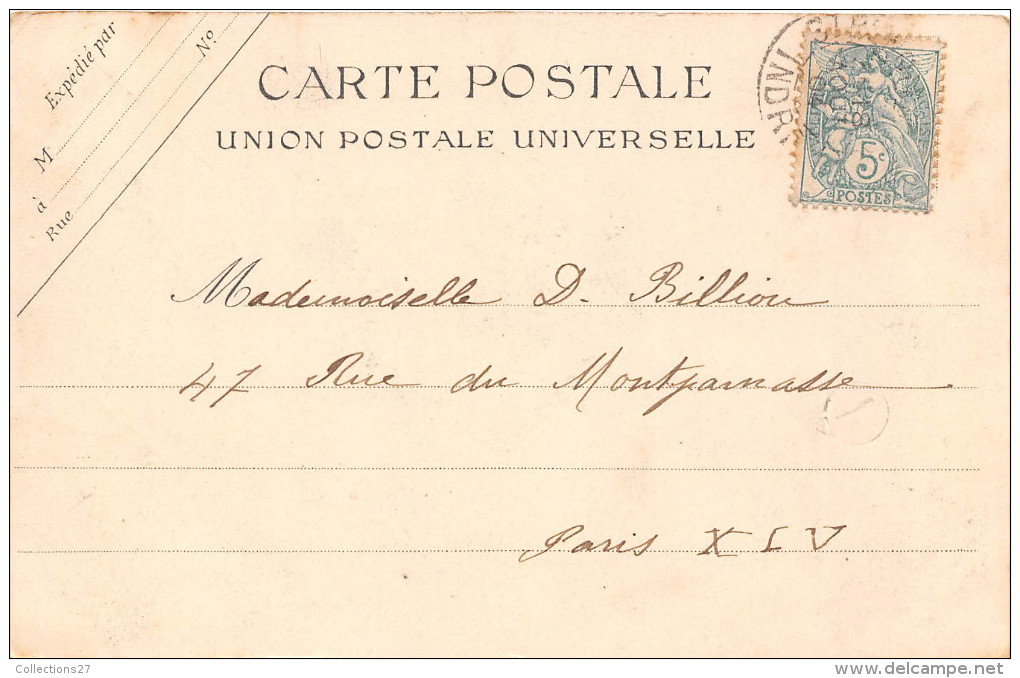 Expédié par
M
à
Rue
N°
CARTE POSTALE
UNION POSTALE UNIVERSELLE
INDR
5c
POSTES
Mademoiselle D. Billion
47 Rue du Montparnasse
Paris XIV
Collections27
www.delcampe.net